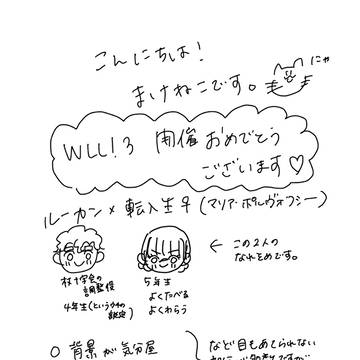 こんにちは！
まけねこです。
にゃ
WLL！3 開催おめでとう
ございます♡
ルーカン×転入生♀（マリア・ポルヴォフシー）
← この2人の
なれそめです。
杖十字会の
調整役
4年生（という
設定）
5年生
よくたべる
よくわらう
○ 背景が気分屋
など目もあてられない